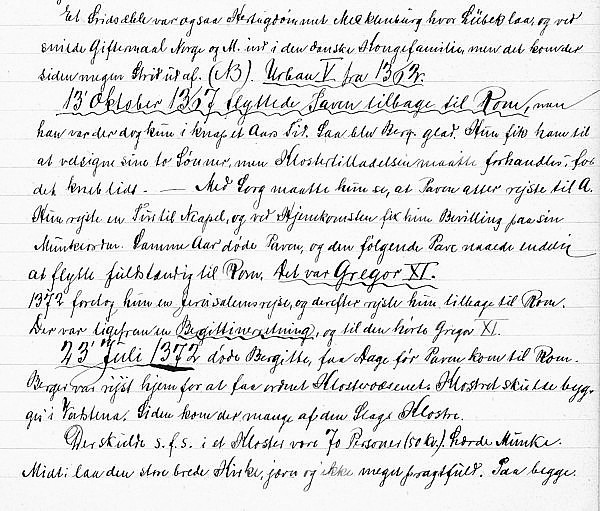 Et Stridsæble var ogsaa Hertugdømmet Mecklenburg hvor Lübek laa, og ved
snilde Giftermaal Norge og M. ind i den danske Kongefamilie, men det kom der
siden megen Strid ud af. (NB). Urban V. fra 1362.
13' Oktober 1367 flyttede Paven tilbage til Rom, men
han var der dog kun i knap et Aars Tid. Saa blev Berg. glad. Hun fik ham til
at velsigne sine to Sønner, men Klostertilladelsen maatte forhandles, for
det kneb lidt. — Med Sorg maatte hun se, at Paven atter rejste til A.
Hun rejste en Tur til Neapel, og ved Hjemkomsten fik hun Bevilling paa sin
Munkeorden. Samme Aar døde Paven, og den følgende Pave naaede endelig
at flytte fuldstændig til Rom. Det var Gregor XI.
1372 foretog hun en Jerusalemsrejse, og derefter rejste hun tilbage til Rom.
Der var ligefrem en Begittineretning, og til den hørte Gregor XI.
23' Juli 1372 døde Bergitte, faa Dage før Paven kom til Rom.
Berger var rejst hjem for at faa ordnet Klostervæsenet. Klostret skulde byg-
ges i Vadstena. Siden kom der mange af den Slags Klostre.
Der skulde s.f.s. i et Kloster være 70 Personer (50 kv.). Lærde Munke.
Midt i laa den store brede Kirke, jævn og ikke meget pragtfuld. Paa begge